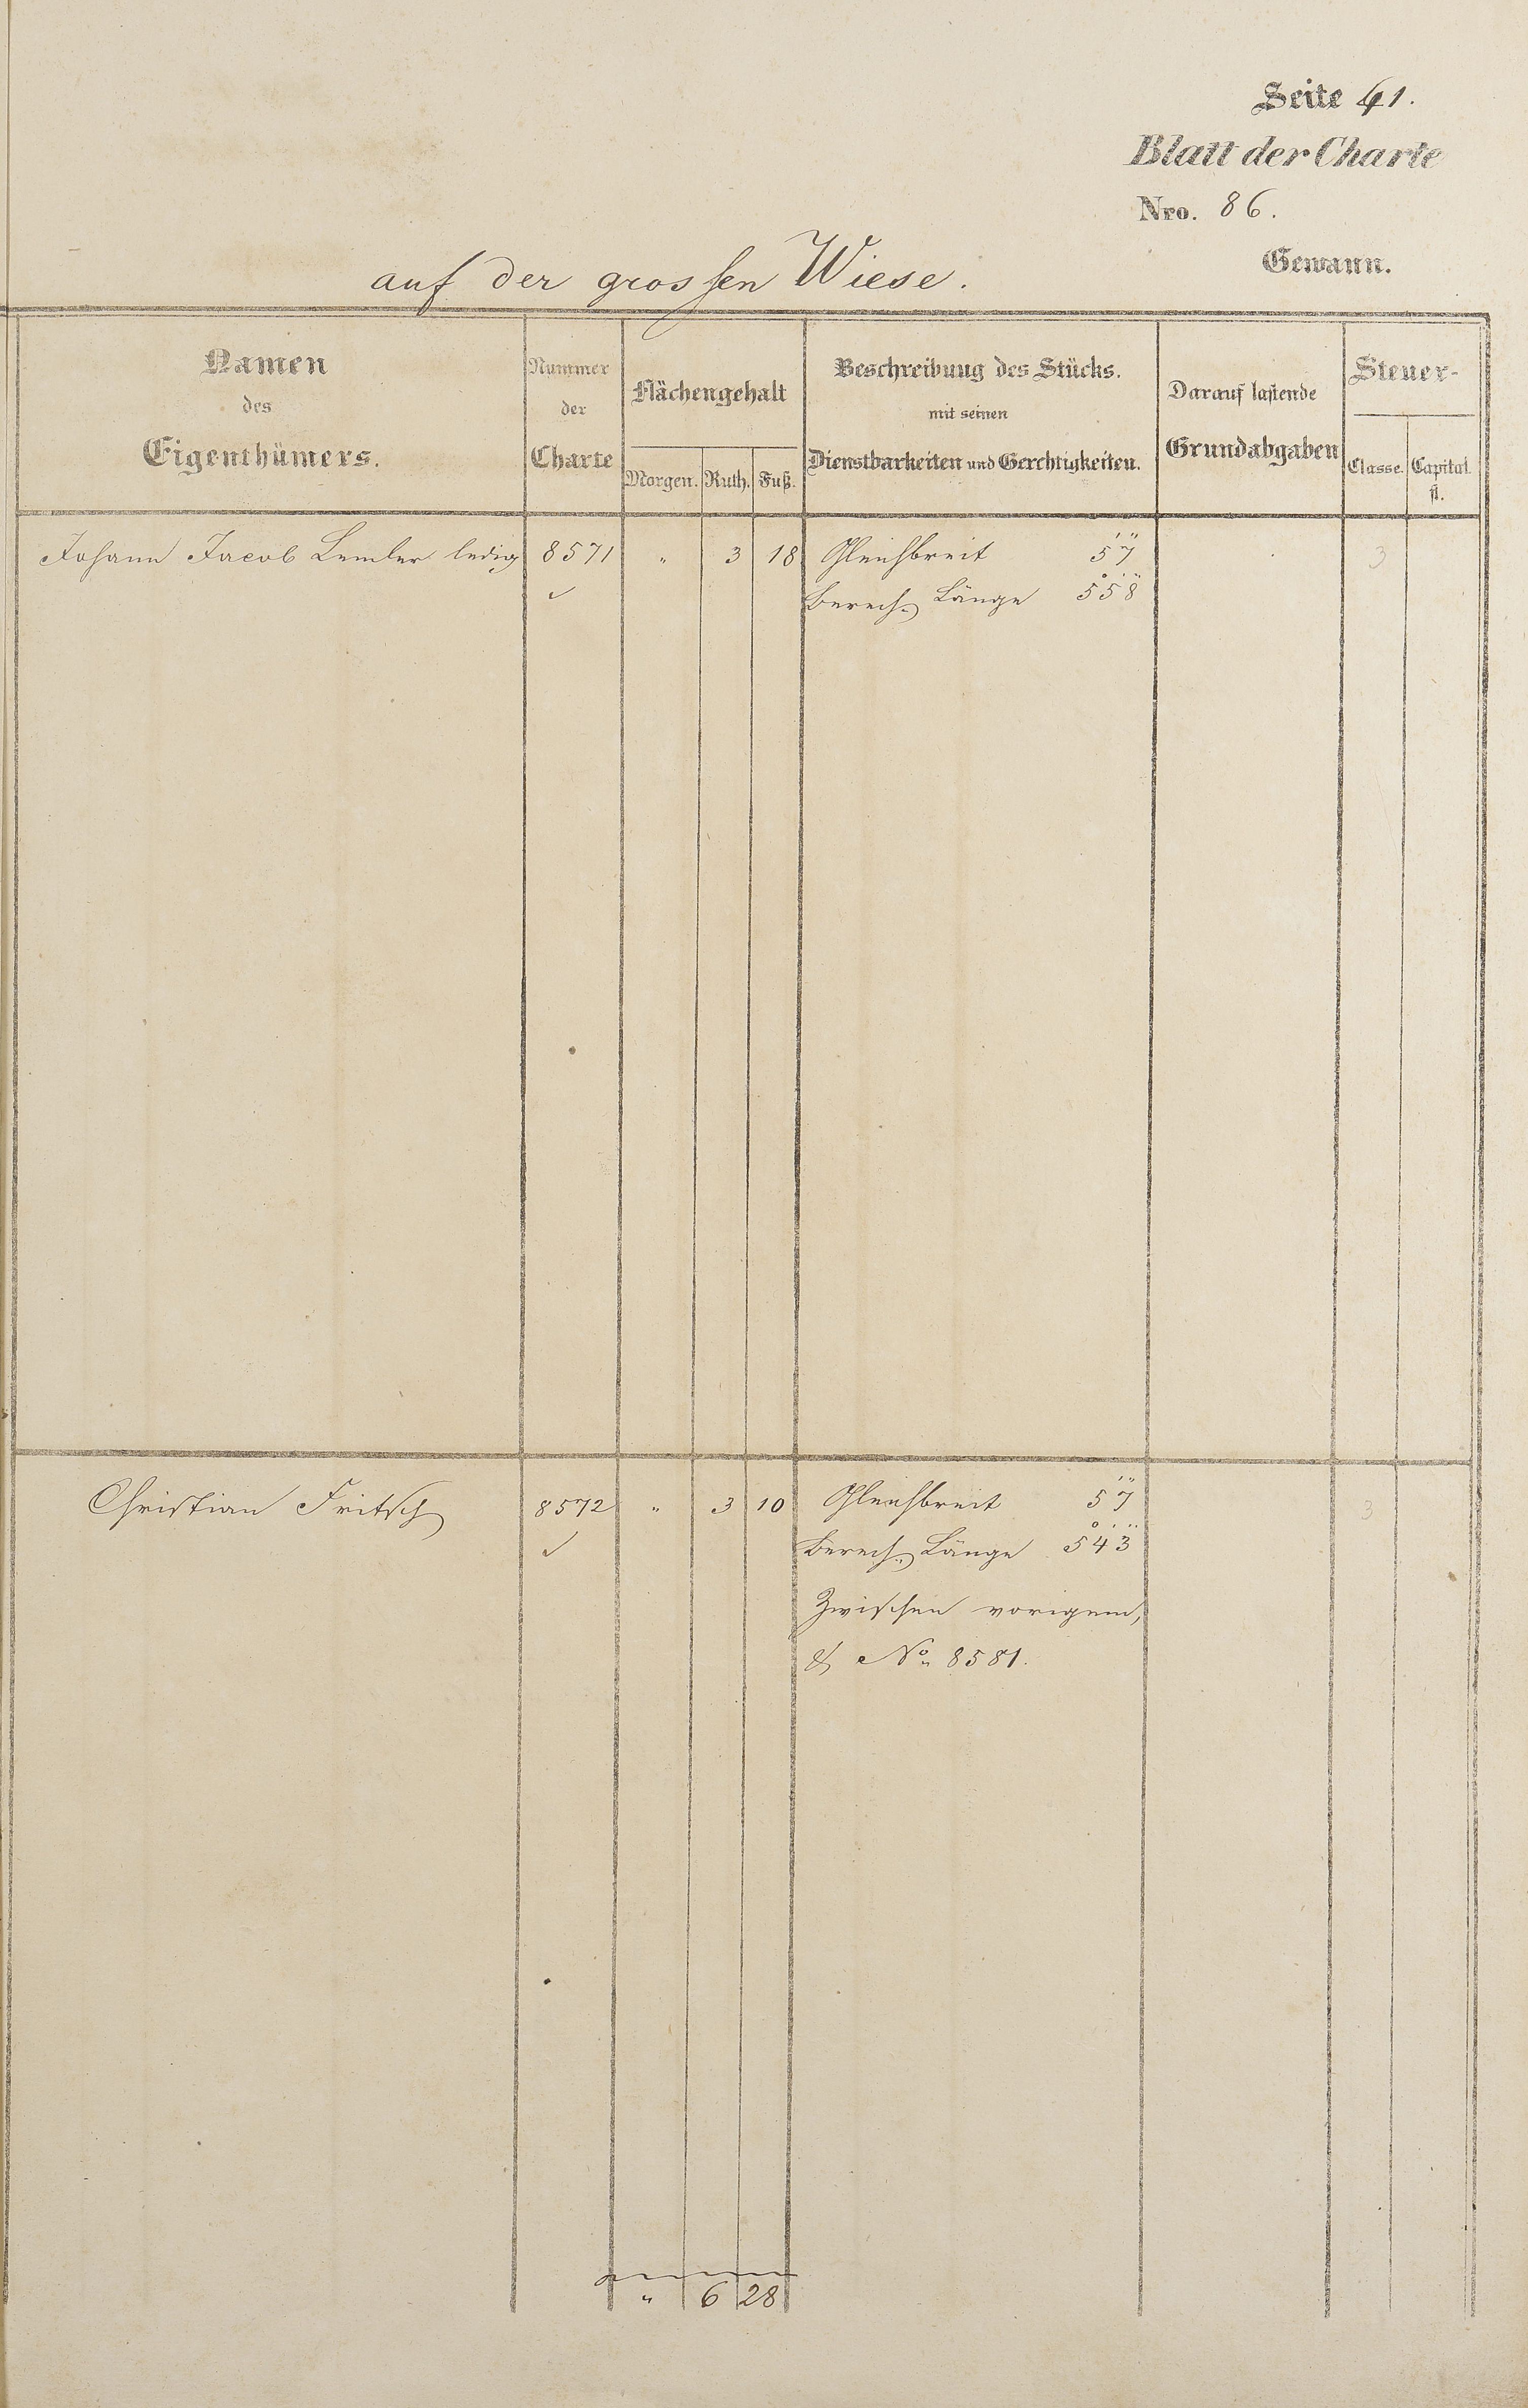 Seite 41.
Blatt der Charte
Nro. 86.
Gewann.
auf der grossen Wiese.
Namen des Eigenthümers.
Nummer der Charte
Flächengehalt
Morgen. Ruth. Fuß.
Beschreibung des Stücks.
mit seinen
Dienstbarkeiten und Gerechtigkeiten.
Darauf lastende
Grundabgaben
Steuer-
Classe. Capital fl.
Johann Jacob Lemler ledig 8571 " 3 18 Gleichbreit 5' 7" 3
✓ Berech. Länge 5° 5' 8"
Christian Fritsch 8572 " 3 10 Gleichbreit 5' 7" 3
✓ Berech. Länge 5° 4' 3"
Zwischen vorigem,
& No. 8581.
" 6 28